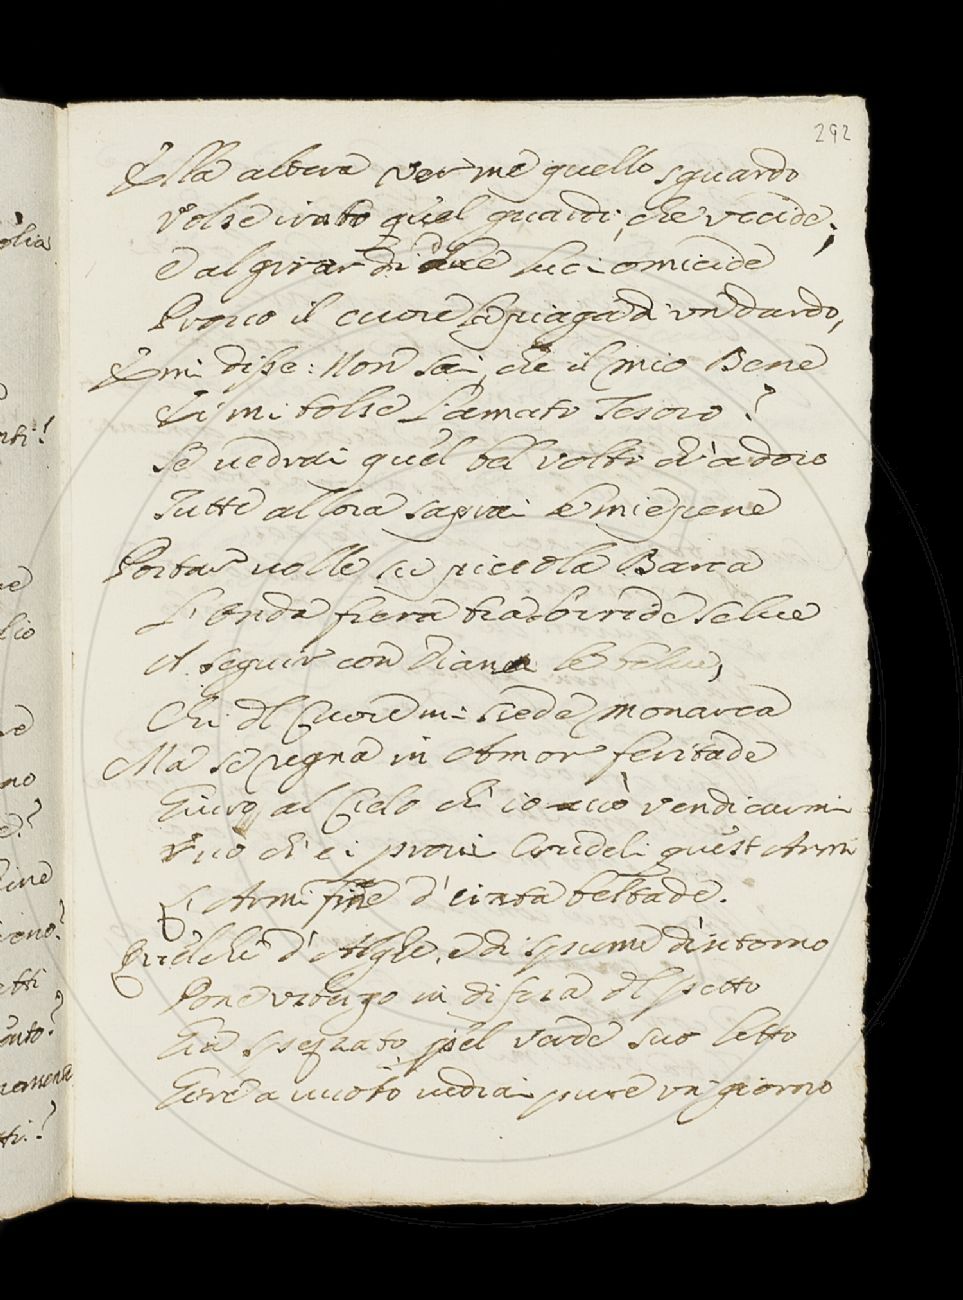 292
Ella altera ver me quello sguardo
Volse irato quel guardo, che uccide;
E al girar di due luci omicide
Provo il cuore la piaga di un dardo,
E mi disse: Non sai, che il mio Bene
Ei mi tolse L'amato Tesoro?
Se vedrai quel bel volto ch'adoro
Tutte allora saprai le mie pene
Portar volle sì piccola Barca
L'Onda fiera tra orride selve
A seguir con Diana le belve,
Chi dl Cuore mi siede monarca
Ma se regna in Amor feritade
Giuro al Cielo ch'io vò vendicarmi
Vuò ch'ei provi Crudeli quest'Armi
L'Armi fine d'irata beltade.
Quel che d'Alghe, e di spume d'intorno
Pone usbergo in difesa dl petto
Già sprezzato pel verde suo letto
Gire a nuoto vedrai pure un giorno
olia
nti!
re
lio
re
no
e?
ine
iono?
etti
onto?
tti?